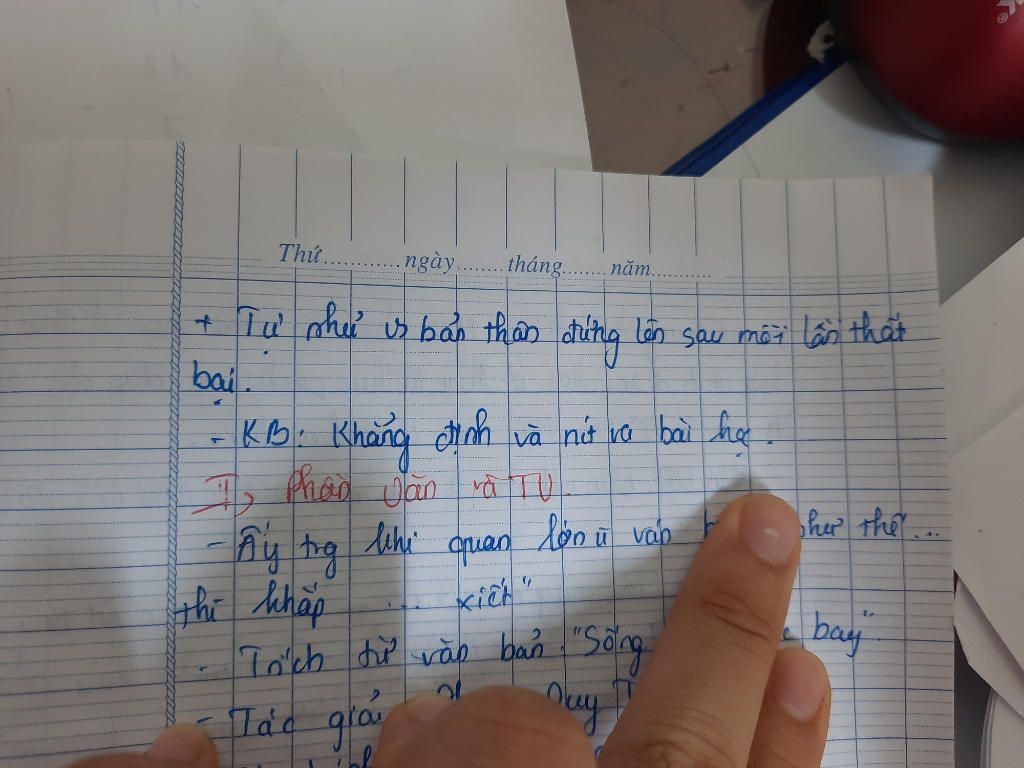 Thứ............ngày........tháng.......năm...........
+ Tự nhủ vs bản thân đứng lên sau mỗi lần thất
bại.
- KB: Khẳng định và rút ra bài họ.
II, Phần Văn và TV.
- Ấy trg khi quan lớn ù ván như thế...
thì khắp ... xiết"
- Trích từ văn bản "Sống bay".
- Tác giả Duy